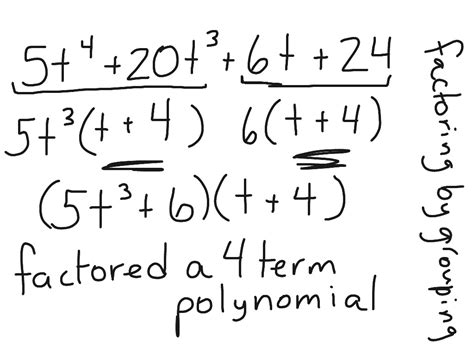 5t⁴ + 20t³ + 6t + 24
5t³(t + 4) 6(t + 4)
(5t³ + 6)(t + 4)
factored a 4 term
polynomial
factoring by grouping